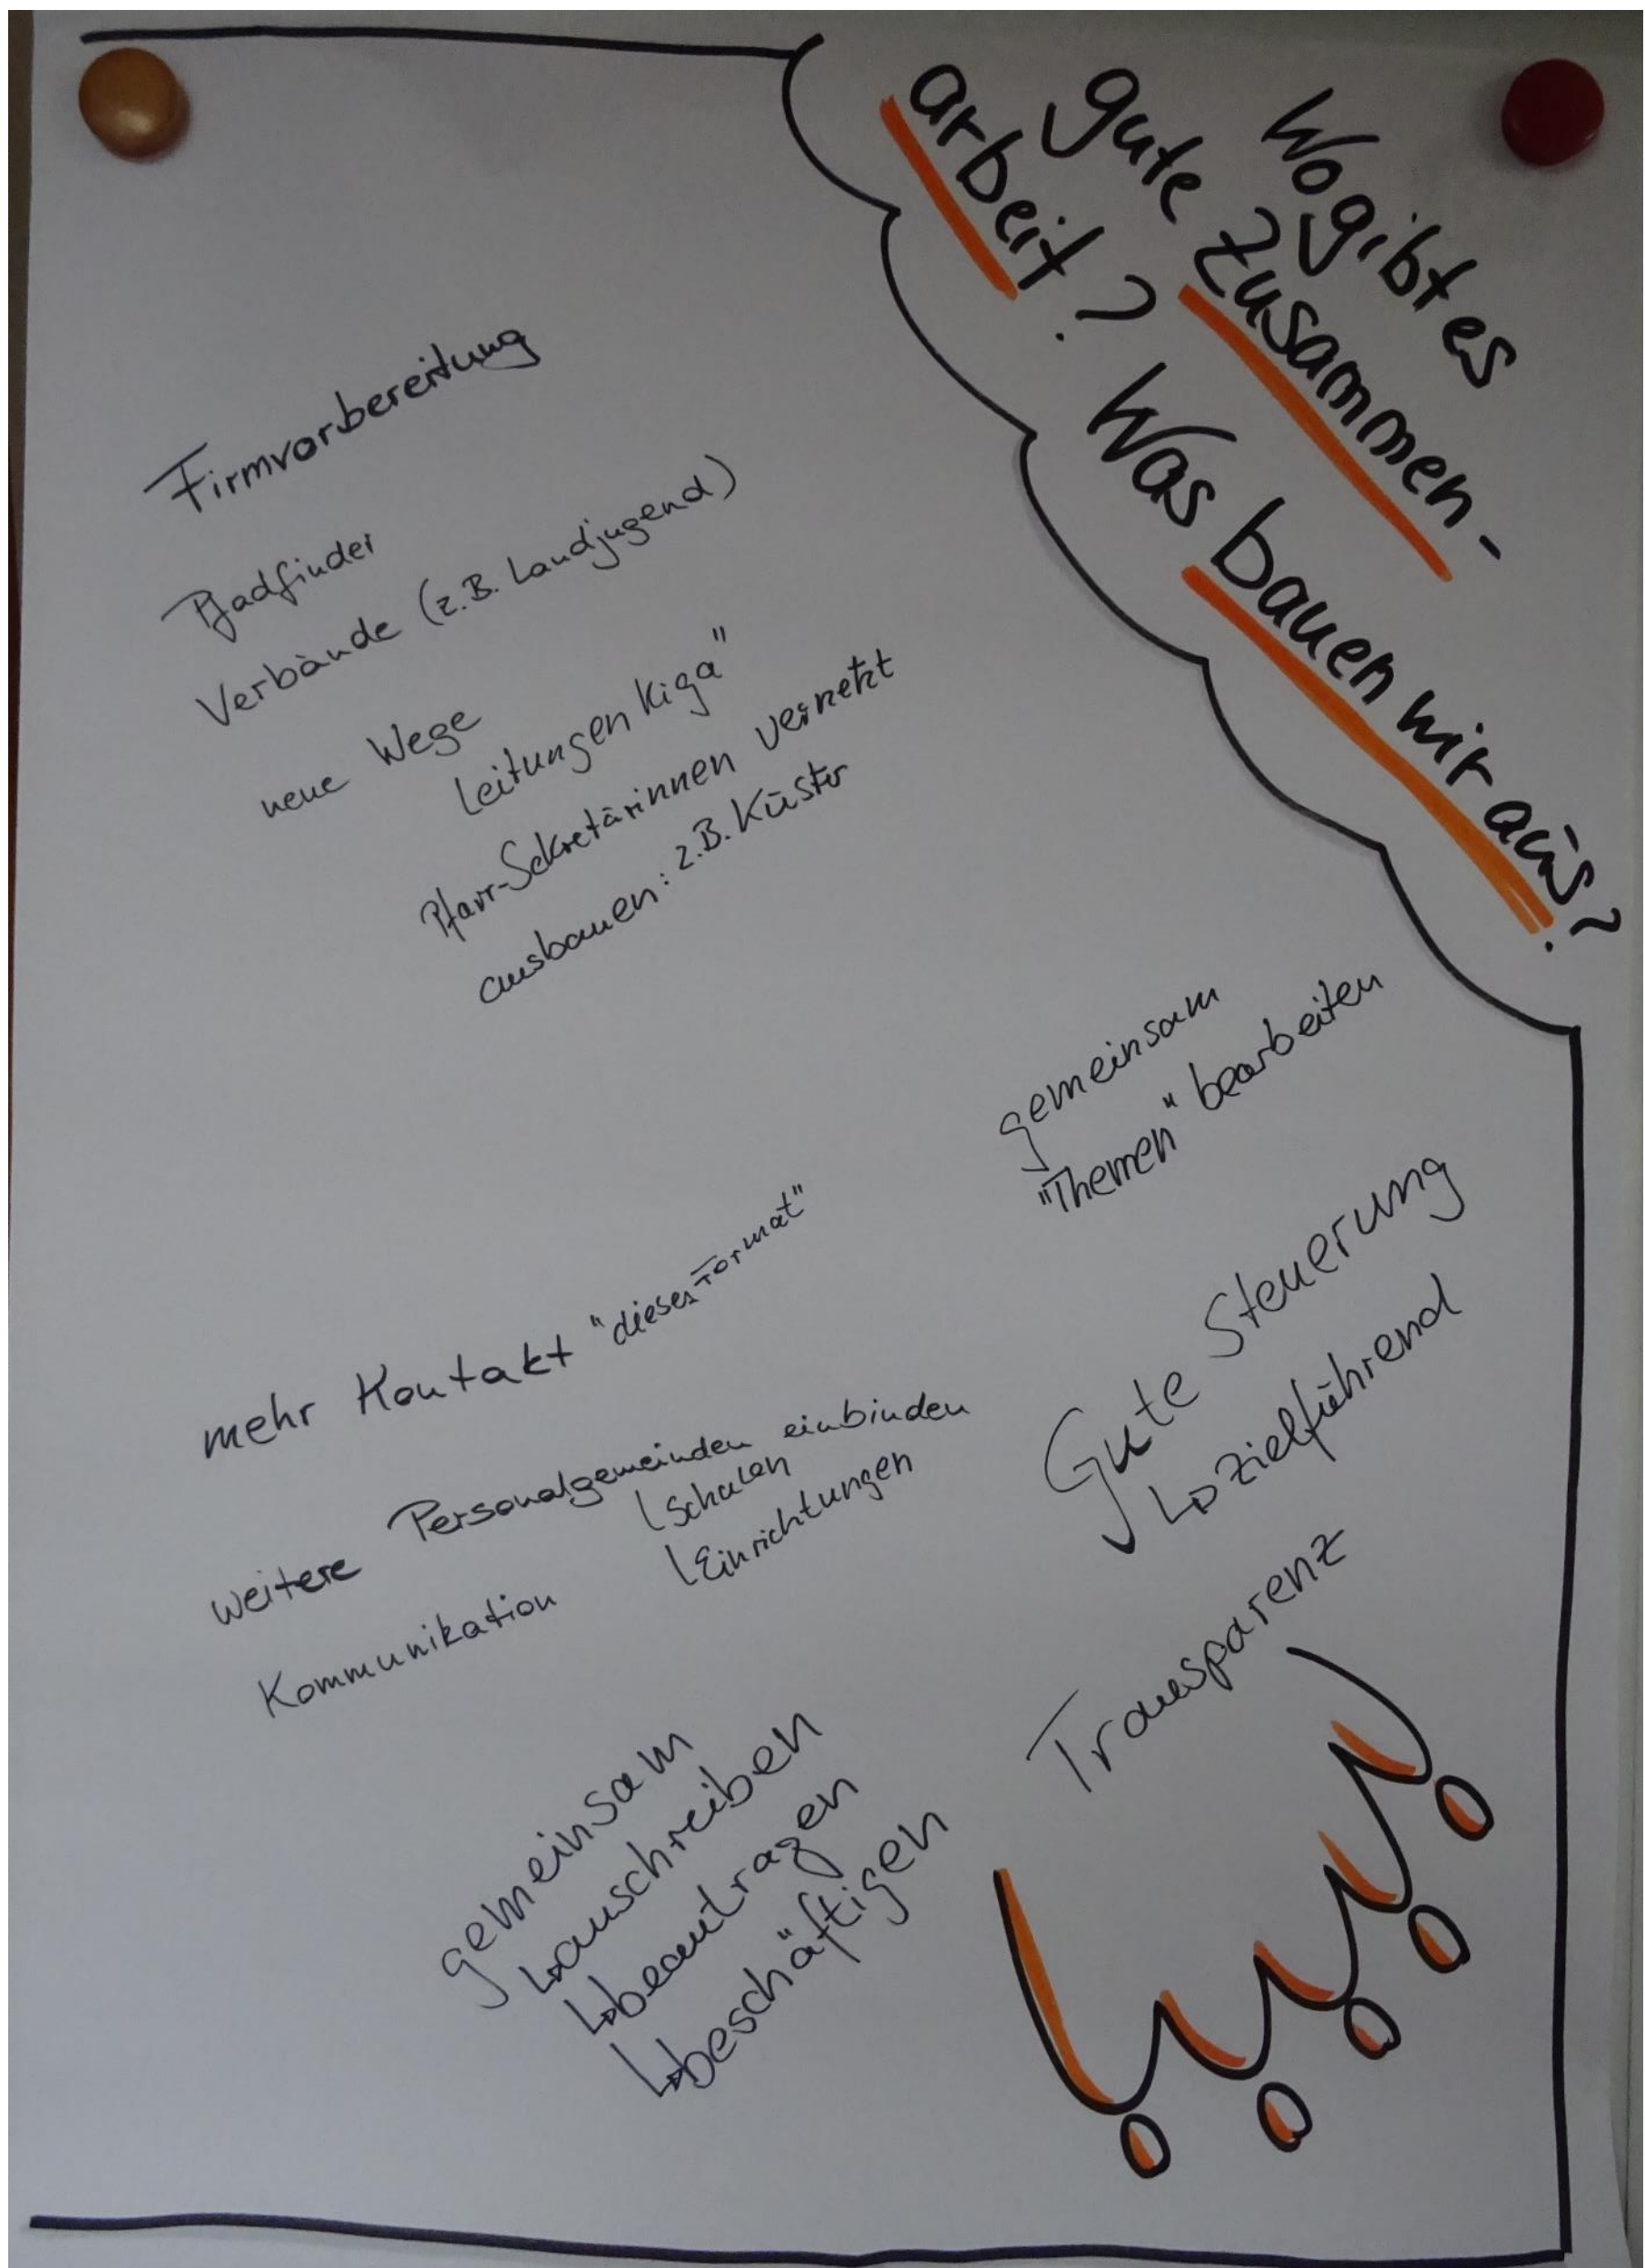 Wo gibt es
gute Zusammen-
arbeit?
Was bauen wir aus?
Firmvorbereitung
Pfadfinder
Verbände (z.B. Landjugend)
neue Wege
Leitungen Kiga"
Pfarr-Sekretärinnen vernetzt
ausbauen: z.B. Küster
gemeinsam
"Themen" bearbeiten
mehr Kontakt "dieses Format"
Gute Steuerung
↳ zielführend
weitere Personalgemeinden einbinden
Schulen
Einrichtungen
Kommunikation
Transparenz
gemeinsam
↳ auschreiben
↳ beantragen
↳ beschäftigen